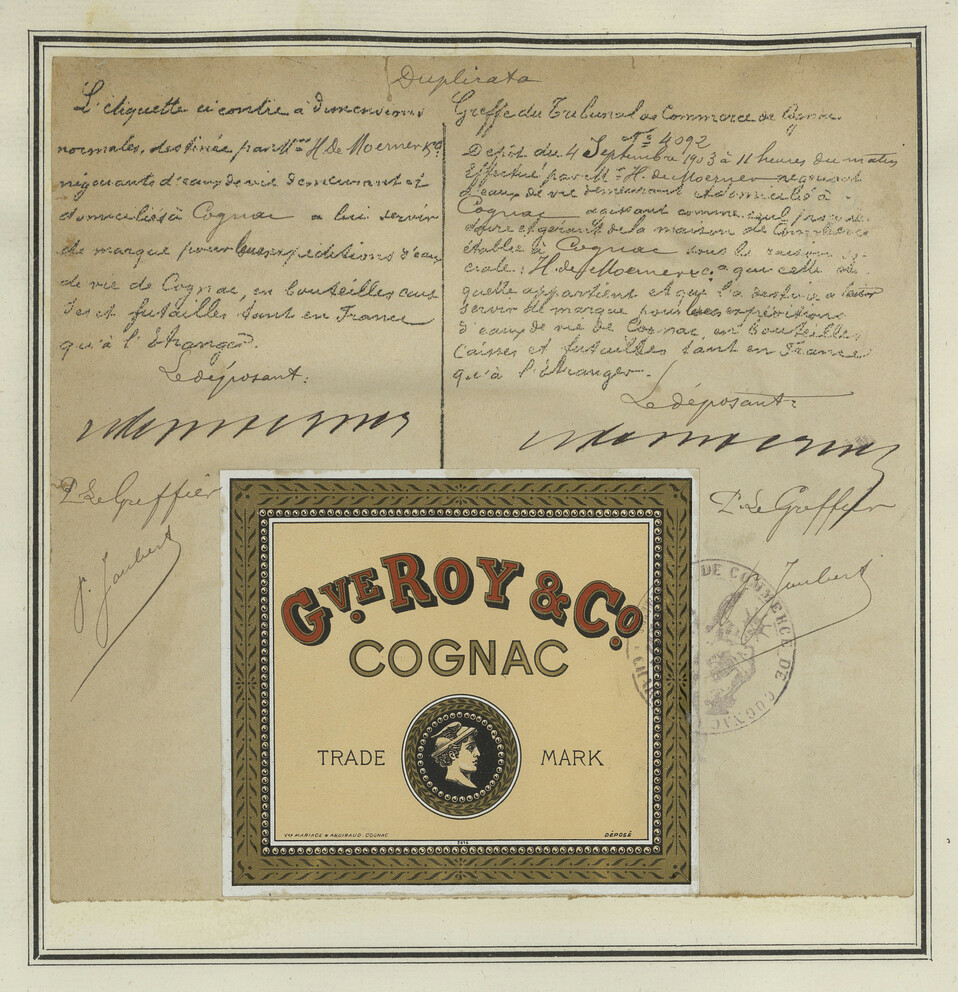 Duplicata
L'étiquette ci contre à dimensions
normales, destinée par Mr H. De Moerner & Co
négociants d'eaux de vie demeurant et
domiciliés à Cognac a lui servir
de marque pour leurs expéditions d'eaux
de vie de Cognac, en bouteilles cais
ses et futailles tant en France
qu'à l'étranger.
Le déposant:
P. Le Greffier
P. Jaubert
Greffe du Tribunal de Commerce de Cognac
No 4092
Dépôt du 4 Septembre 1903 à 11 heures du matin
Effectué par Mr H. de Moerner négociant
d'eaux de vie demeurant et domicilié à
Cognac agissant comme seul
et gérant de la maison de Commerce
établie à Cognac sous la raison so
ciale: H. de Moerner & Co a qui cette éti
quette appartient et qui l'a destine a leur
servir de marque pour leurs expéditions
d'eaux de vie de Cognac en bouteilles
caisses et futailles tant en France
qu'à l'étranger.
Le déposant:
P. Le Greffier
Jaubert
DE COMMERCE DE COGNAC
GVE ROY & CO
COGNAC
TRADE MARK
VVE MARIAGE & ANGIBAUD COGNAC
DÉPOSÉ